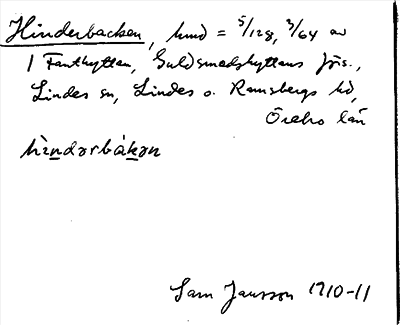 Hinderbacken, hmd = 5/128, 3/64 av
1 Fanthyttan, Guldsmedshyttans förs.,
Lindes sn, Lindes o. Ramsbergs hd,
Örebro län
hìndərbákən
Sam Jansson 1910-11